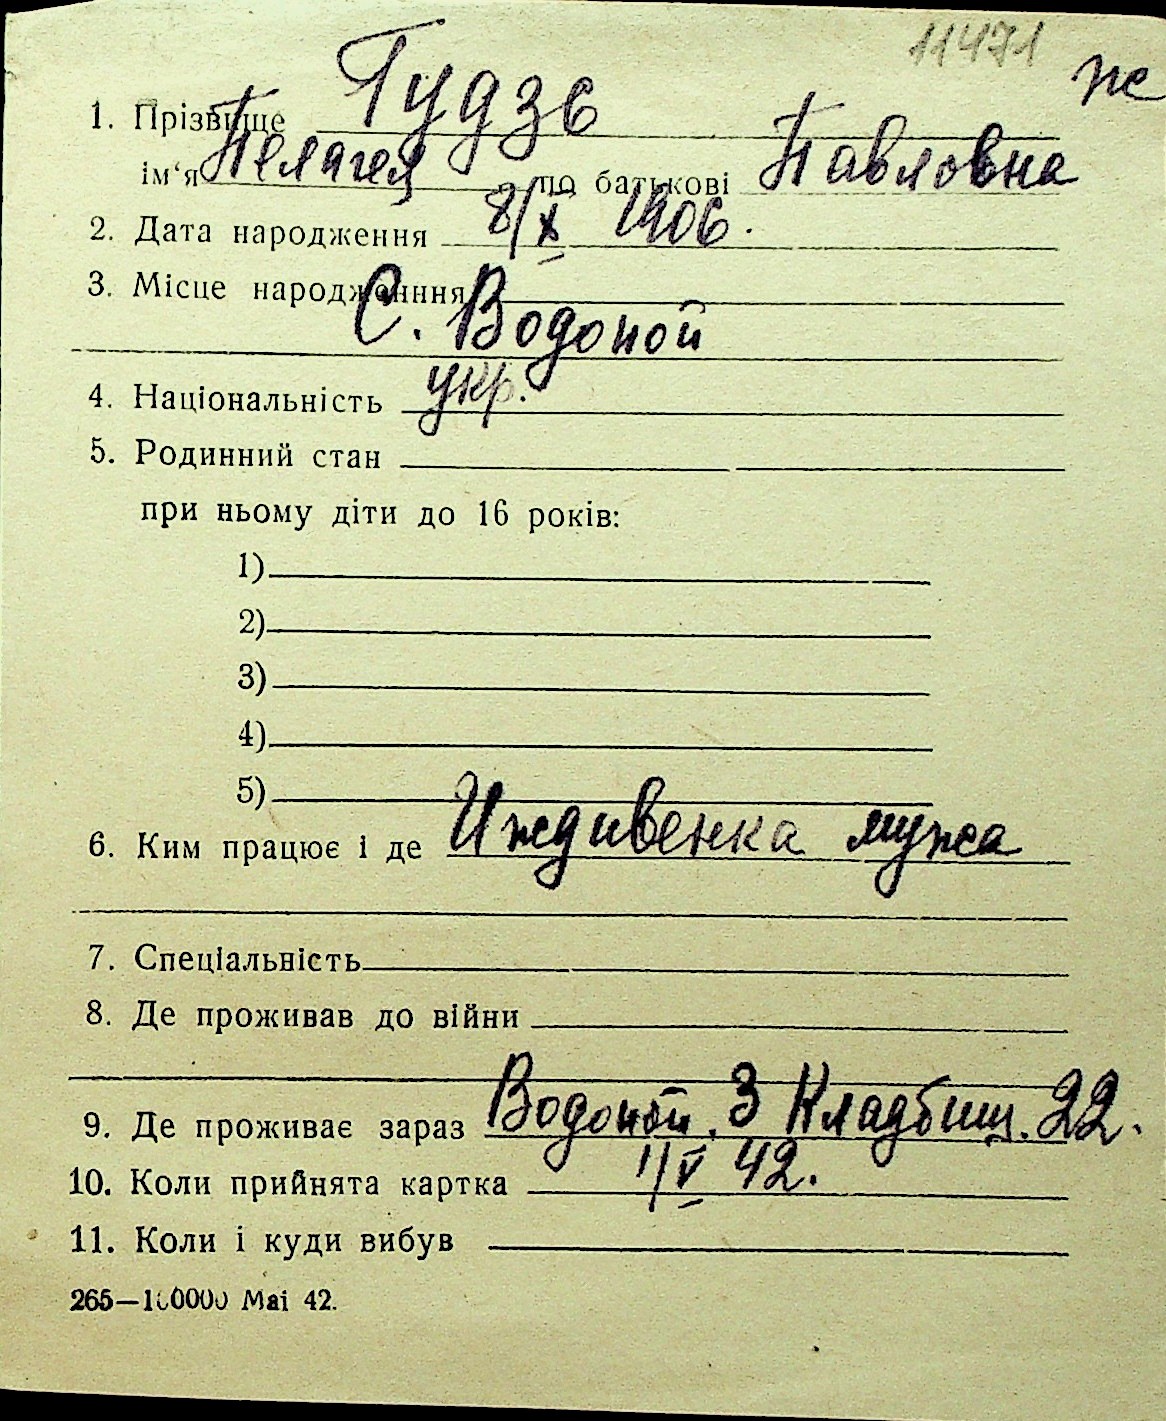 11471
ж
1. Прізвище Гудзь
ім'я Пелагея по батькові Павловна
2. Дата народження 8/X 1906.
3. Місце народженння
С. Водопой
4. Національність укр.
5. Родинний стан
при ньому діти до 16 років:
1)
2)
3)
4)
5)
6. Ким працює і де Иждивенка мужа
7. Спеціальність
8. Де проживав до війни
9. Де проживає зараз Водопой. 3 Кладбищ. 22.
10. Коли прийнята картка 1/V 42.
11. Коли і куди вибув
265—100000 Mai 42.